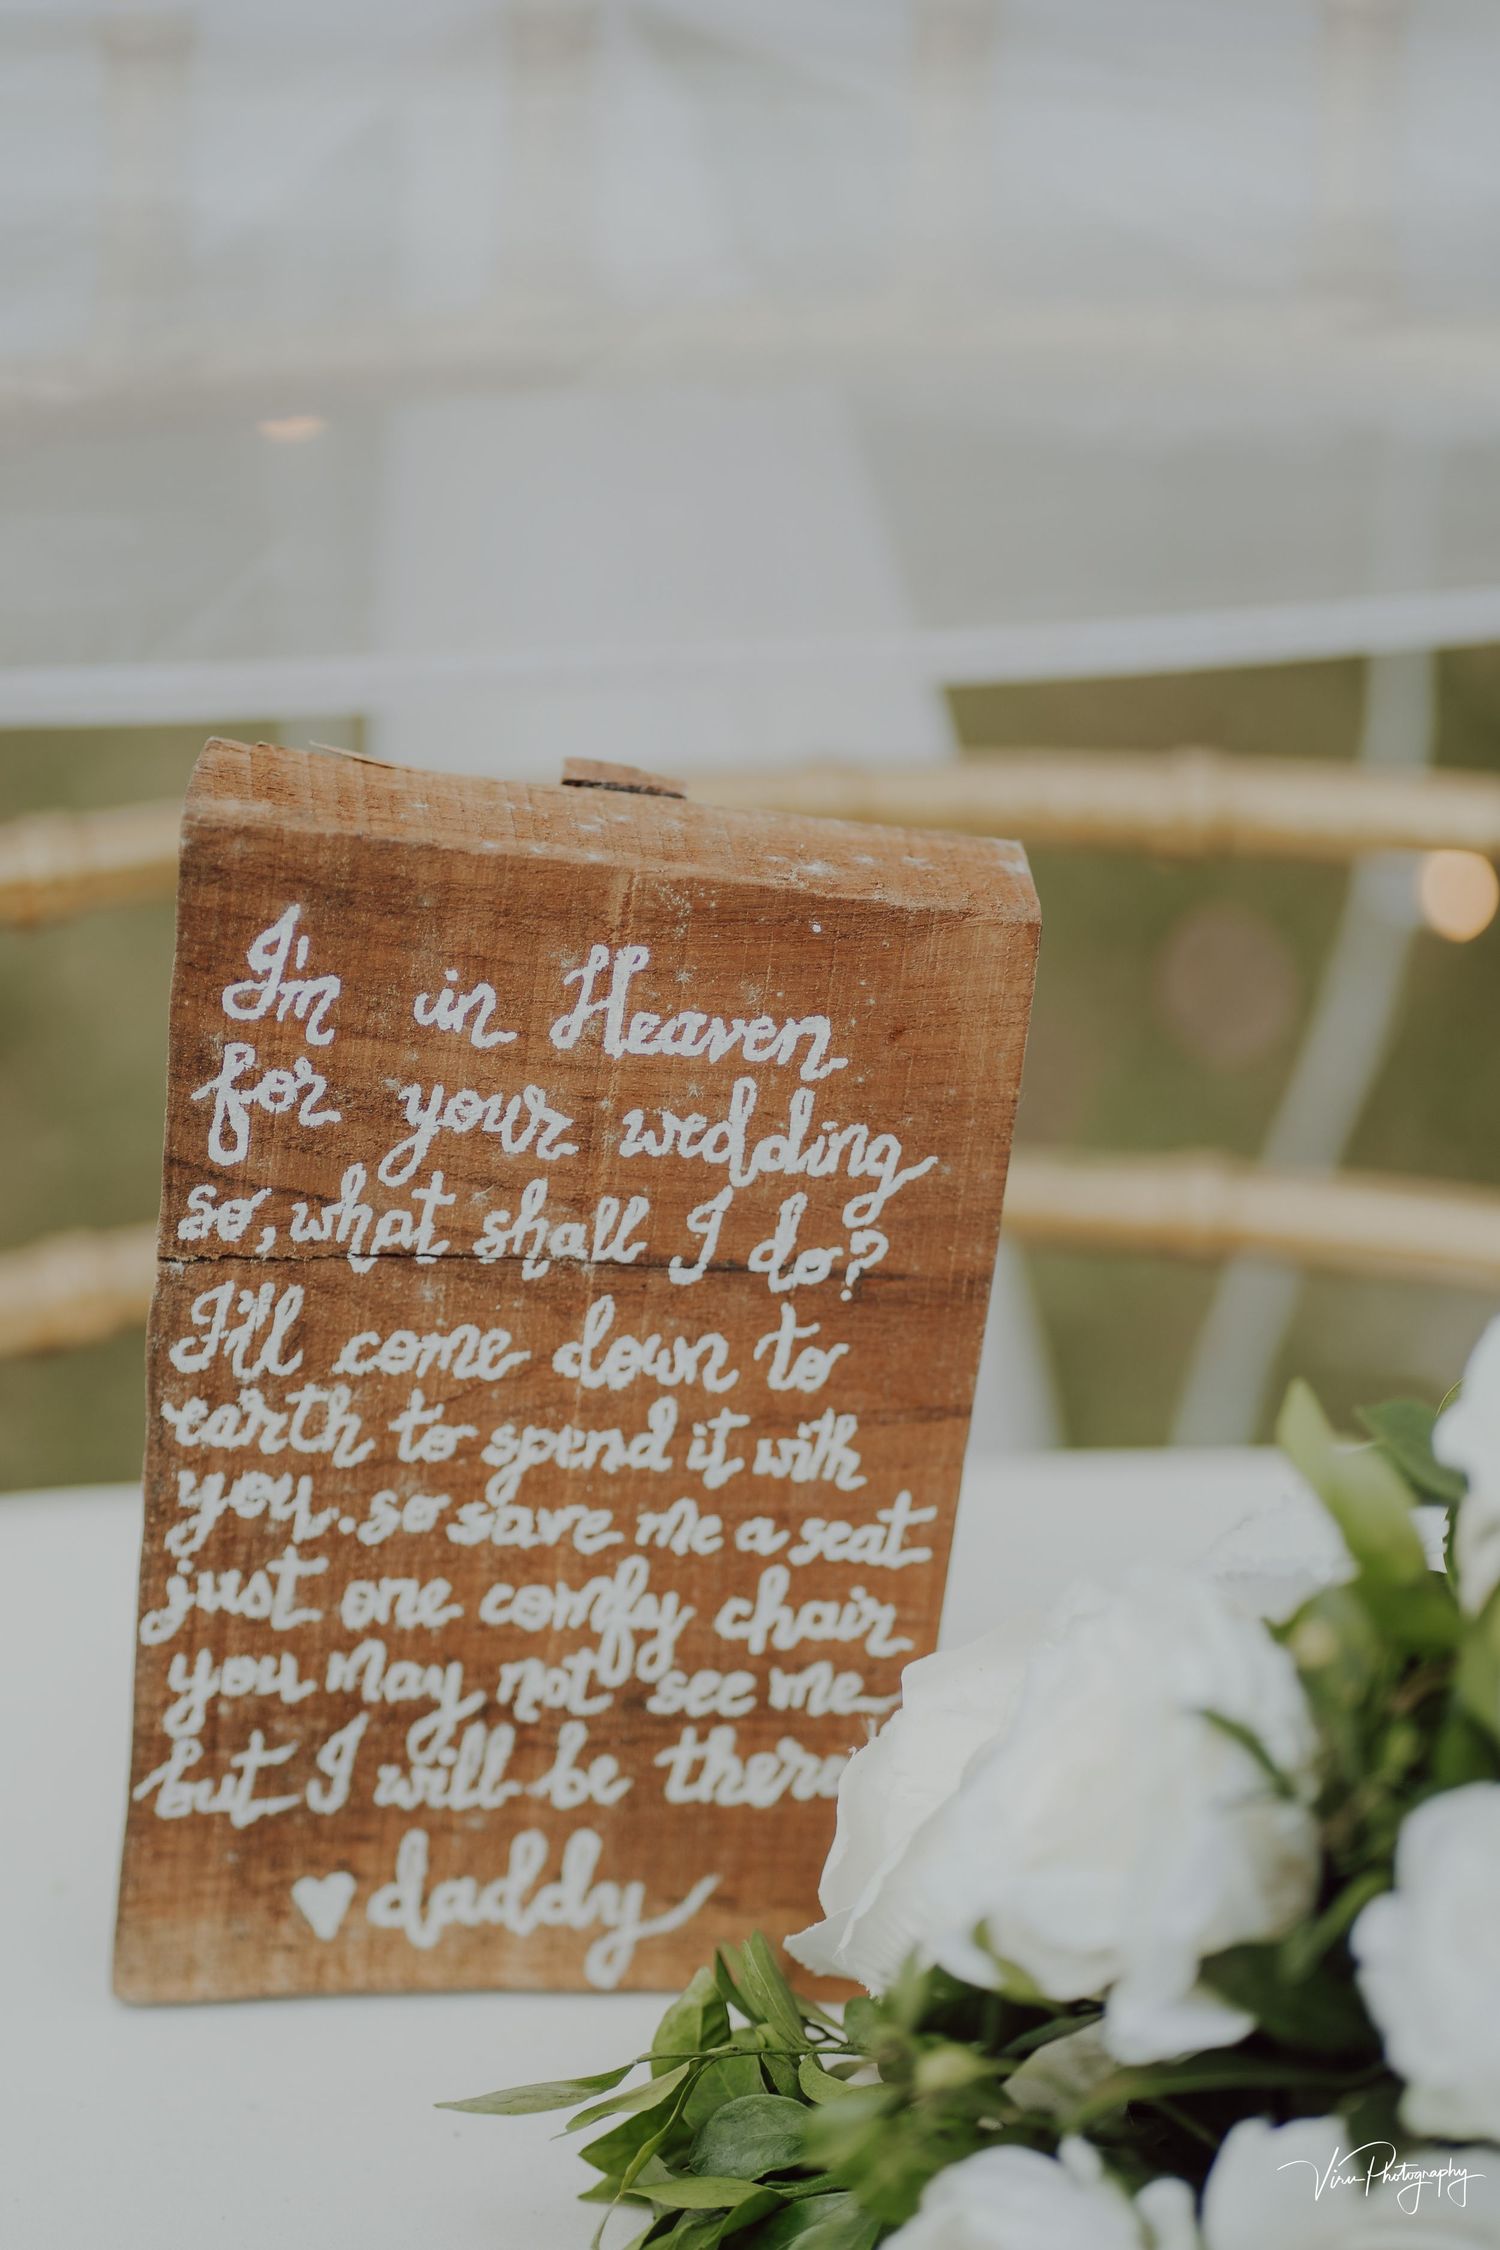 I'm in Heaven
for your wedding
so, what shall I do?
I'll come down to
earth to spend it with
you. so save me a seat
just one comfy chair
you may not see me
but I will be there
♥ daddy
Viru Photography